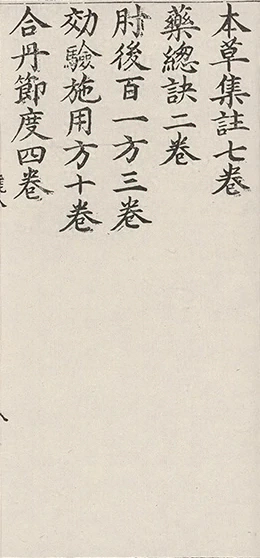 本草集註七卷
藥總訣二卷
肘後百一方三卷
効驗施用方十卷
合丹節度四卷